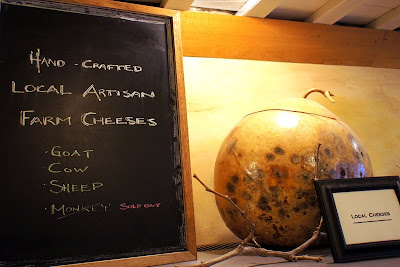 Hand-Crafted
Local Artisan
Farm Cheeses
· Goat
· Cow
· Sheep
· Monkey Sold Out
Local Cheeses